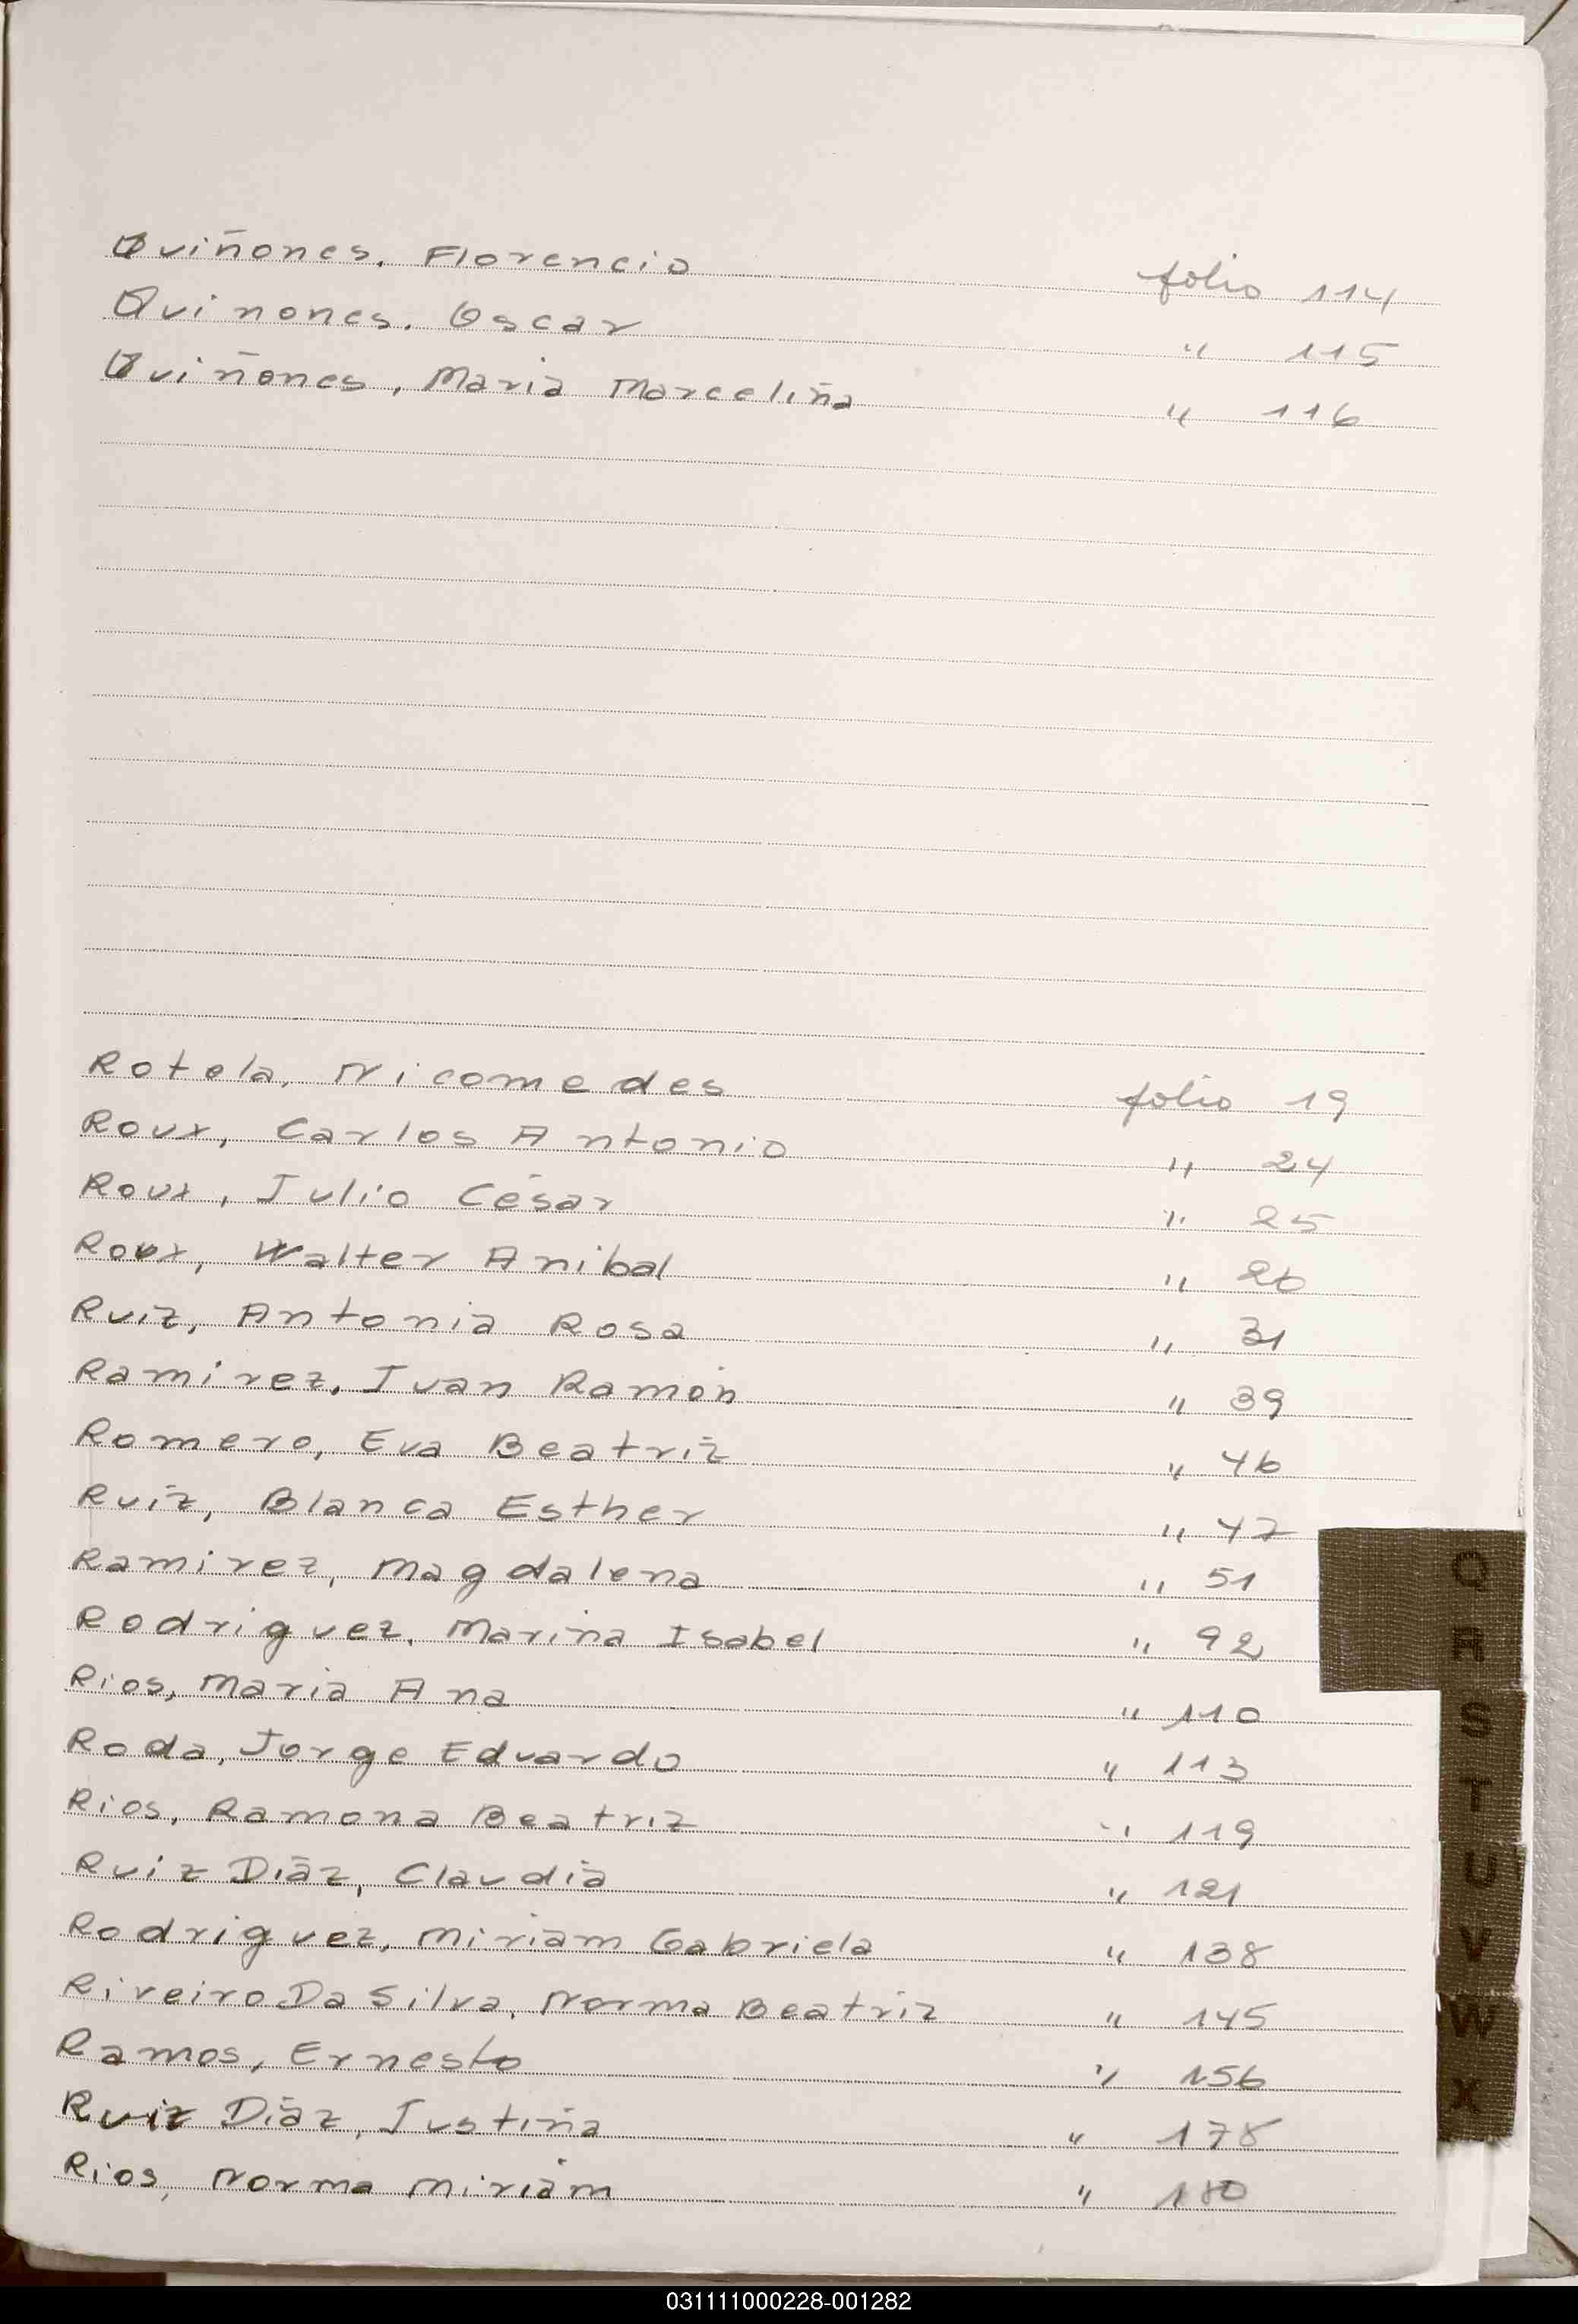 Quiñones, Florencio folio 114
Quinones, Oscar " 115
Quiñones, Maria Marcelina " 116
Rotela, Nicomedes folio 19
Roux, Carlos Antonio " 24
Roux, Julio César " 25
Roux, Walter Anibal " 26
Ruiz, Antonia Rosa " 31
Ramirez, Juan Ramón " 39
Romero, Eva Beatriz " 46
Ruiz, Blanca Esther " 47
Ramirez, Magdalena " 51
Rodriguez, Marina Isabel " 92
Rios, Maria Ana " 110
Roda, Jorge Eduardo " 113
Rios, Ramona Beatriz " 119
Ruiz Diáz, Claudia " 121
Rodriguez, Miriam Gabriela " 138
Riveiro Da Silva, Norma Beatriz " 145
Ramos, Ernesto " 156
Ruiz Diáz, Justina " 178
Rios, Norma Miriam " 180
Q
R
S
T
U
V
W
X
031111000228-001282